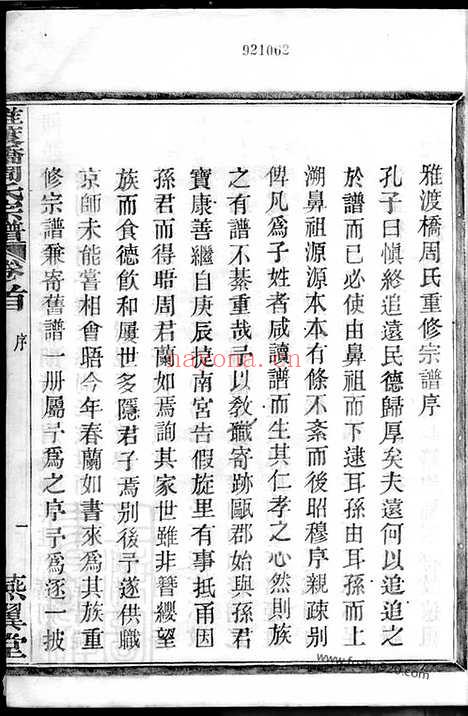 921062
雅渡橋周氏重修宗譜序
孔子曰愼終追遠民德歸厚矣夫遠何以追追之
於譜而已必使由鼻祖而下逮耳孫由耳孫而上
溯鼻祖源源本本有條不紊而後昭穆序親疎别
俾凡爲子姓者咸讀譜而生其仁孝之心然則族
之有譜不綦重哉予以敎職寄跡甌郡始與孫君
寶康善繼自庚辰捷南宮告假旋里有事抵甬因
孫君而得晤周君蘭如焉詢其家世雖非簪纓望
族而食德飲和屢世多隱君子焉别後予遂供職
京師未能嘗相會晤今年春蘭如書來爲其族重
修宗譜兼寄舊譜一册屬予爲之序予爲逐一披
周氏宗譜
卷首
序
一
燕翼堂
hayona.cn